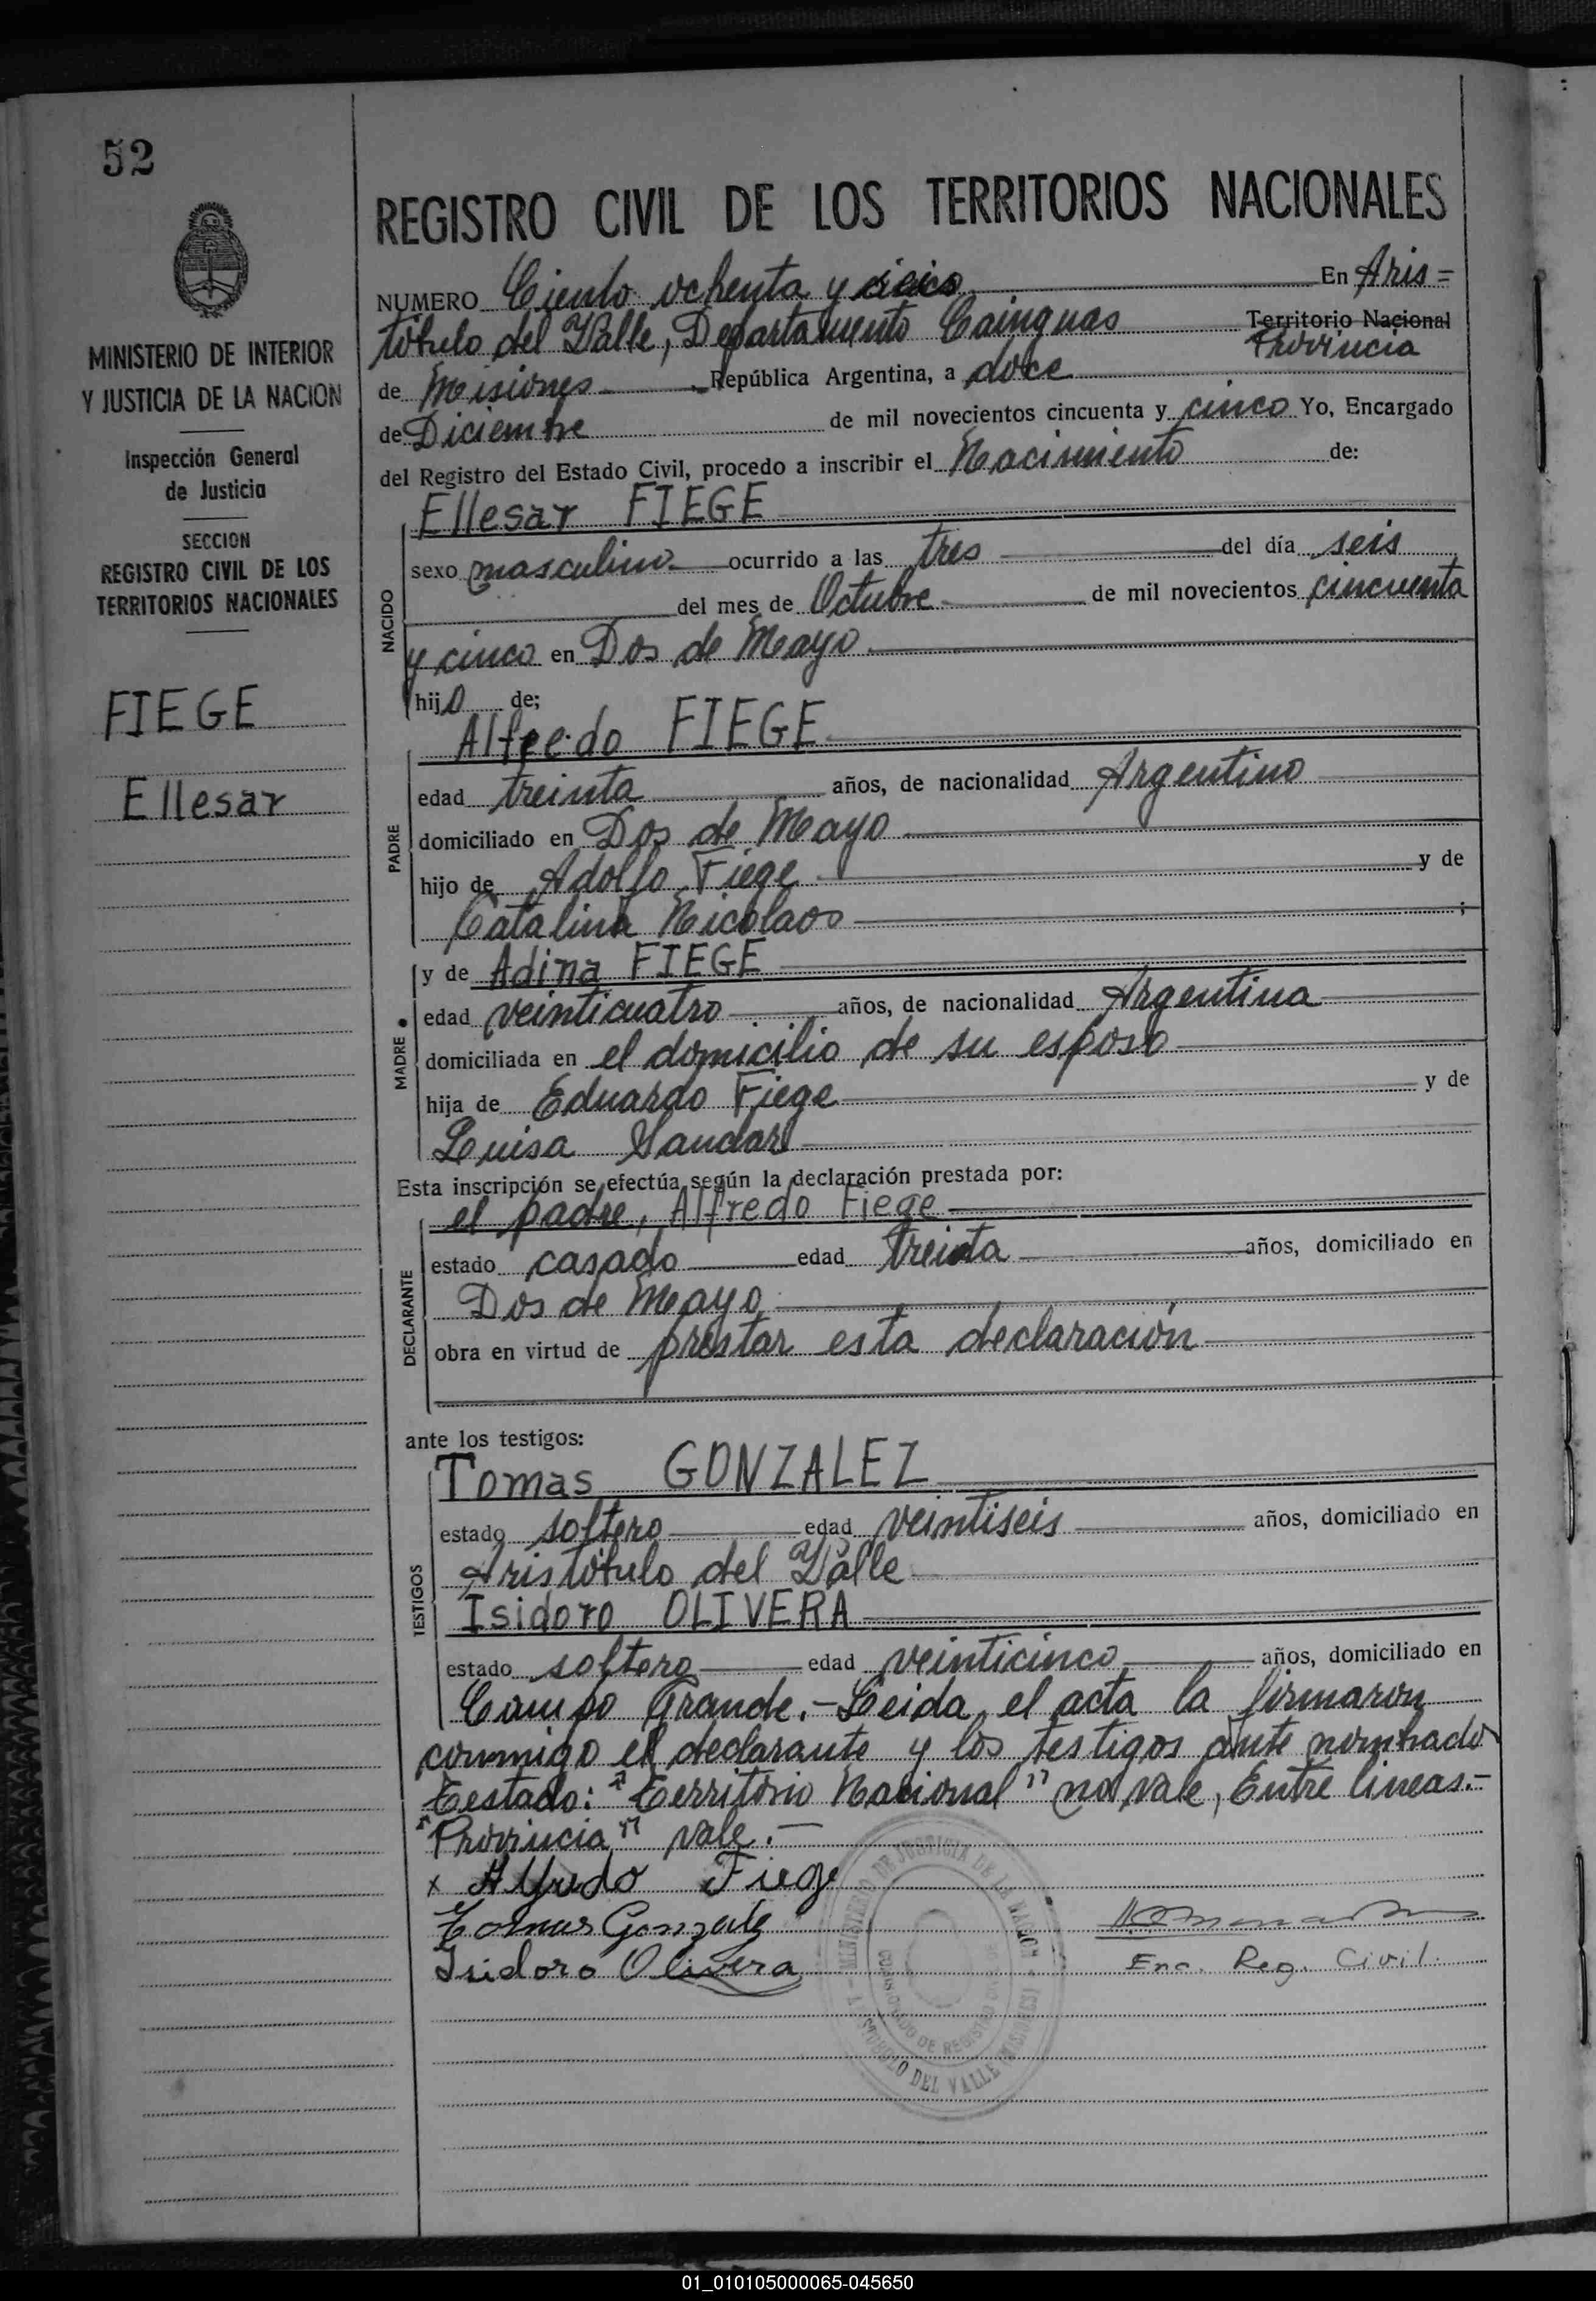 52
MINISTERIO DE INTERIOR
Y JUSTICIA DE LA NACION
Inspección General
de Justicia
SECCION
REGISTRO CIVIL DE LOS
TERRITORIOS NACIONALES
FIEGE
Ellesar
REGISTRO CIVIL DE LOS TERRITORIOS NACIONALES
NUMERO Ciento ochenta y cinco En Aris=
tóbulo del Valle, Departamento Cainguas Territorio Nacional
Provincia
de Misiones República Argentina, a doce
de Diciembre de mil novecientos cincuenta y cinco Yo, Encargado
del Registro del Estado Civil, procedo a inscribir el Nacimiento de:
Ellesar FIEGE
NACIDO
sexo masculino ocurrido a las tres del día seis
del mes de Octubre de mil novecientos cincuenta
y cinco en Dos de Mayo
hijo de;
Alfredo FIEGE
PADRE
edad treinta años, de nacionalidad Argentino
domiciliado en Dos de Mayo
hijo de Adolfo Fiege y de
Catalina Nicolaos ;
MADRE
y de Adina FIEGE
edad veinticuatro años, de nacionalidad Argentina
domiciliada en el domicilio de su esposo
hija de Eduardo Fiege y de
Luisa
Esta inscripción se efectúa según la declaración prestada por:
DECLARANTE
el padre, Alfredo Fiege
estado casado edad treinta años, domiciliado en
Dos de Mayo
obra en virtud de prestar esta declaración
ante los testigos:
TESTIGOS
Tomas GONZALEZ
estado soltero edad veintiseis años, domiciliado en
Aristóbulo del Valle
Isidoro OLIVERA
estado soltero edad veinticinco años, domiciliado en
Campo Grande.- Leida el acta la firmaron
conmigo el declarante y los testigos ante nombrados
Testado: "Territorio Nacional" no vale, Entre lineas.-
"Provincia" vale.-
x Alfredo Fiege
Tomas Gonzalez
Isidoro Olivera
Enc. Reg. Civil.
MINISTERIO DE JUSTICIA DE LA NACION
DEL VALLE (MISIONES)
01_010105000065-045650